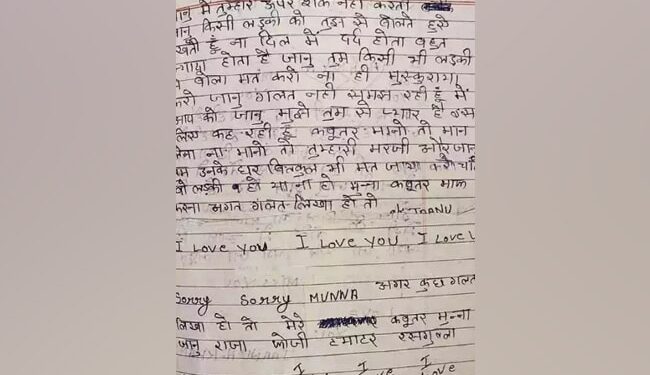 जानु मैं तुम्हारे ऊपर शक नहीं करती
जानु किसी लड़की को तुझ से बोलते हुये
देखती हुँ ना दिल में दर्द होता बहुत
ज्यादा होता है जानु तुम किसी भी लड़की
बोला मत करो ना ही मुस्कुराया
करो जानु गलत नही समझ रही हुँ मैं
आप को जानु मुझे तुम से प्यार है इस
लिए कह रही हुँ कबुतर मानो तो मान
लेना ना मानो तो तुम्हारी मरजी और जानु
तुम उनके घर बिलकुल भी मत जाया करो चाहे
वो लडकी हो या ना हो मुन्ना कबुतर माफ
करना अगर गलत लिखा हो तो JAANU
I LOVE YOU I LOVE YOU I LOVE
Sorry Sorry MUNNA अगर कुछ गलत
लिखा हो तो मेरे कबुतर मुन्ना
जानु राजा टमाटर रसगुल्ला
I I I
Love